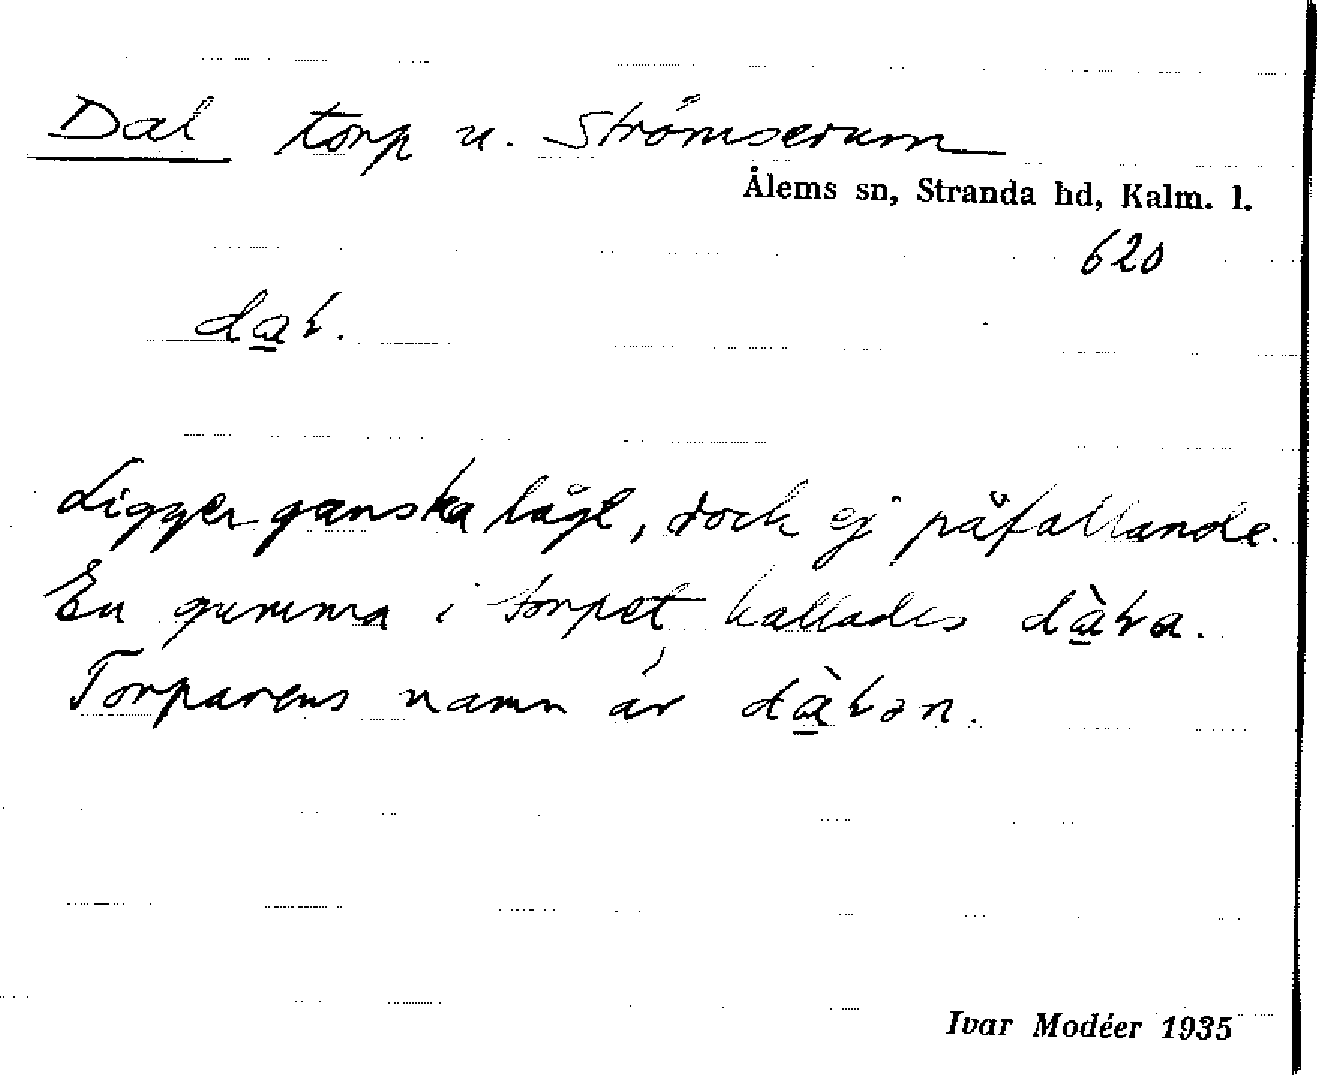 Dal torp u. Strömserum
Ålems sn, Stranda hd, Kalm. l.
620
dal.
Ligger ganska lågt, dock ej påfallande.
En gumma i torpet kallades dàla.
Torparens namn är dàlən.
Ivar Modéer 1935